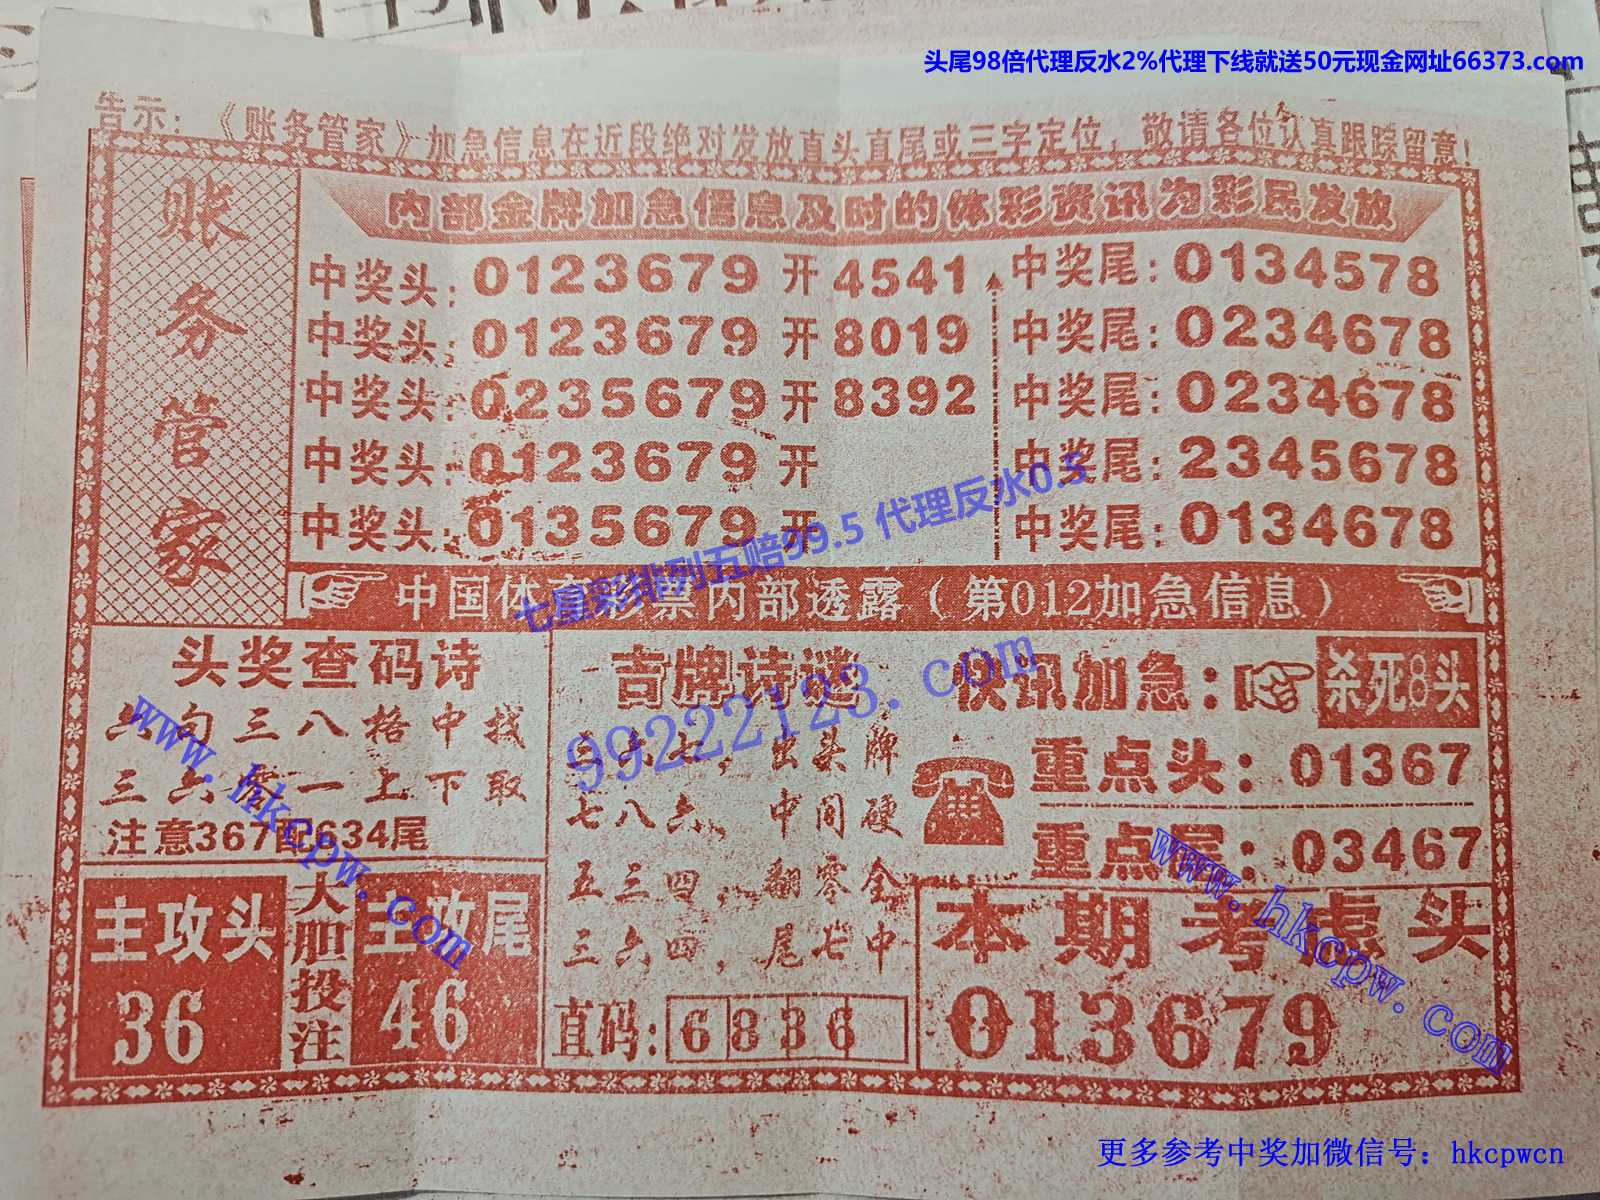 头尾98倍代理反水2%代理下线就送50元现金网址66373.com
告示：《账务管家》加急信息在近段绝对发放直头直尾或三字定位，敬请各位认真跟踪留意！
账务管家
内部金牌加急信息及时的体彩资讯为彩民发放
中奖头：0123679 开 4541 中奖尾：0134578
中奖头：0123679 开 8019 中奖尾：0234678
中奖头：0235679 开 8392 中奖尾：0234678
中奖头：0123679 开 中奖尾：2345678
中奖头：0135679 开 中奖尾：0134678
七星彩排列五赔99.5 代理反水0.5
中国体育彩票内部透露（第012加急信息）
头奖查码诗
句三八格中找
三六 一上下取
注意367配634尾
主攻头
36
大胆投注
主攻尾
46
吉牌诗谜
三六七，出头牌
七八六，中间硬
五三四，翻零全
三六四，尾七中
直码：6836
快讯加急：杀死8头
重点头：01367
重点尾：03467
本期考虑头
013679
99222123.com
www.hkcpw.com
www.hkcpw.com
更多参考中奖加微信号：hkcpwcn